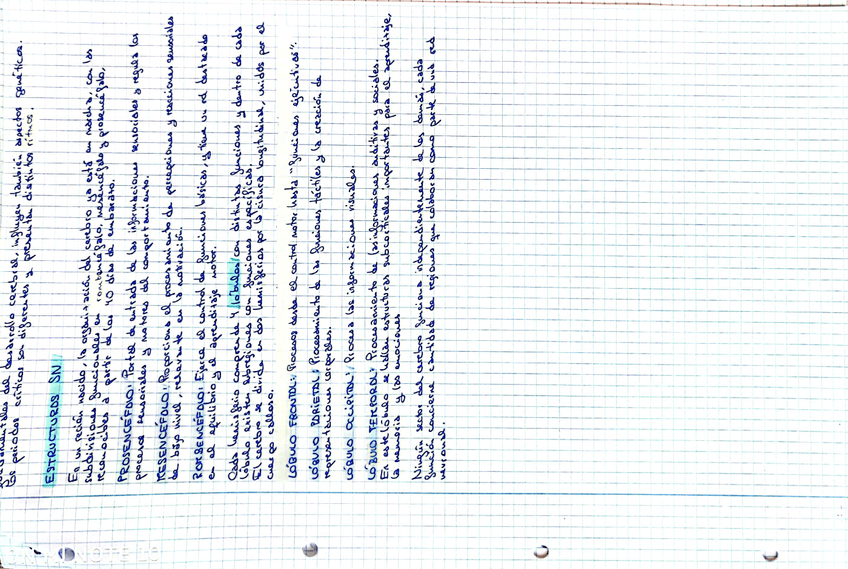 fundamentales del desarrollo cerebral, influyen también aspectos genéticos.
Los periodos críticos son diferentes y presentan distintos ritmos.
ESTRUCTURAS SN
En un recién nacido, la organización del cerebro ya está en marcha, con las
subdivisiones funcionales en romboencéfalo, mesencéfalo y prosencéfalo,
reconocibles a partir de los 40 días de embarazo.
PROSENCÉFALO: Portal de entrada de las informaciones sensoriales y regula los
procesos sensoriales y motores del comportamiento.
MESENCÉFALO: Proporciona el procesamiento de percepciones y reacciones sensoriales
de bajo nivel, relevante en la motivación.
ROMBENCÉFALO: Ejerce el control de funciones básicas, y tiene un rol destacado
en el equilibrio y el aprendizaje motor.
Cada hemisferio comprende 4 lóbulos con distintas funciones y dentro de cada
lóbulo existen subregiones con funciones específicas.
El cerebro se divide en dos hemisferios por la cisura longitudinal, unidos por el
cuerpo calloso.
LÓBULO FRONTAL: Procesos desde el control motor hasta "funciones ejecutivas".
LÓBULO PARIETAL: Procesamiento de las funciones táctiles y la creación de
representaciones corporales.
LÓBULO OCCIPITAL: Procesa las informaciones visuales.
LÓBULO TEMPORAL: Procesamiento de las informaciones auditivas y sociales.
En este lóbulo se hallan estructuras subcorticales importantes para el aprendizaje,
la memoria y las emociones
Ningún sector del cerebro funciona independientemente de los demás, cada
función concierne cantidad de regiones que colaboran como parte de una red
neuronal.